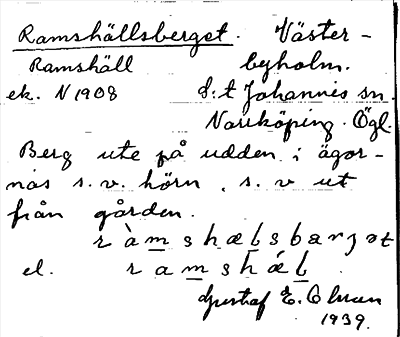 Ramshällsberget. Väster-
Ramshäll byholm.
ek. N 1908 S:t Johannis sn.
Norrköping. Ögl.
Berg ute på udden i ägor-
nas s.v. hörn, s.v ut
från gården.
ràmshælsbarjət
el. ramshǽl
Gustaf E.
1939.